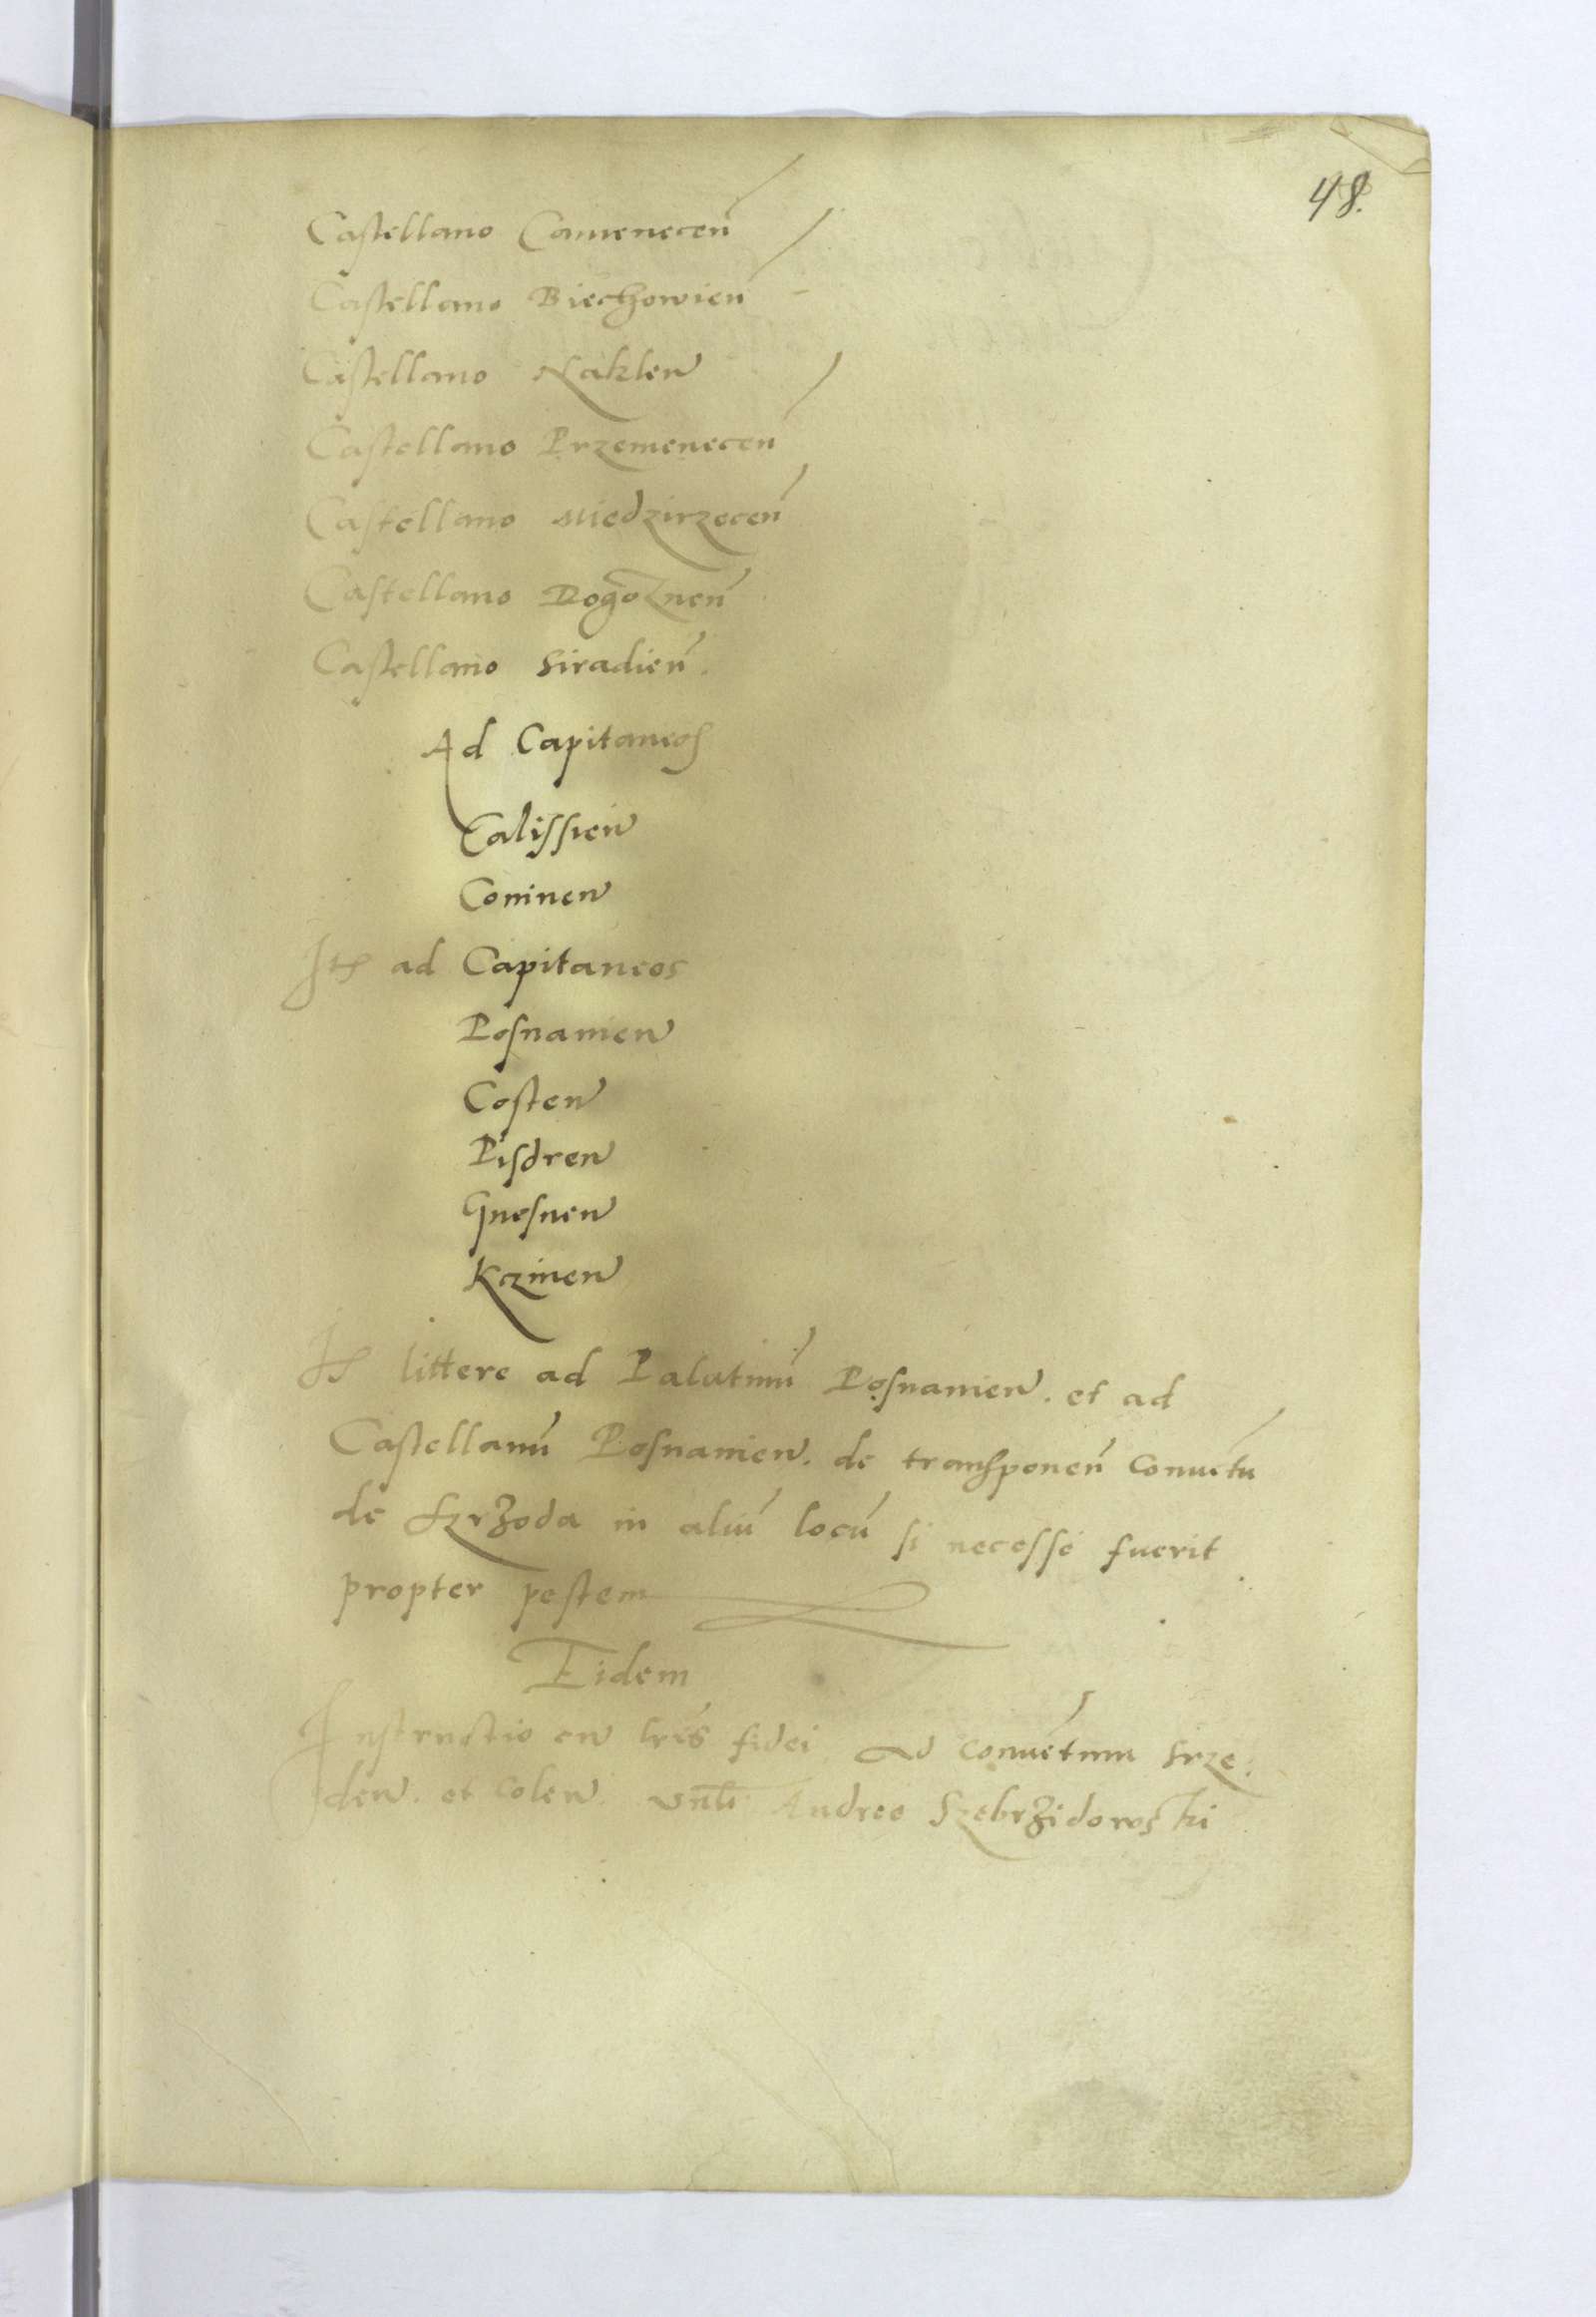 48.
Castellano Camenecen̄
Castellano Biechowien̄
Castellano Naklen
Castellano Przemenecen̄
Castellano Miedzirzecen̄
Castellano Rogoznen̄
Castellano Siradien̄.
Ad Capitaneos
Calissien
Coninen
Itē ad Capitaneos
Posnanien
Costen
Pisdren
Gnesnen
Kczinen
Itē littere ad Palatinū Posnanien. et ad
Castellanū Posnanien. de transponen̄ Conuētu
de Szrzoda in aliū locū si necesse fuerit
propter pestem
Eidem
Instructio cū lrēs fidei ad Conuētum Srze:
den. et Colen. Andree Szebrzidowski